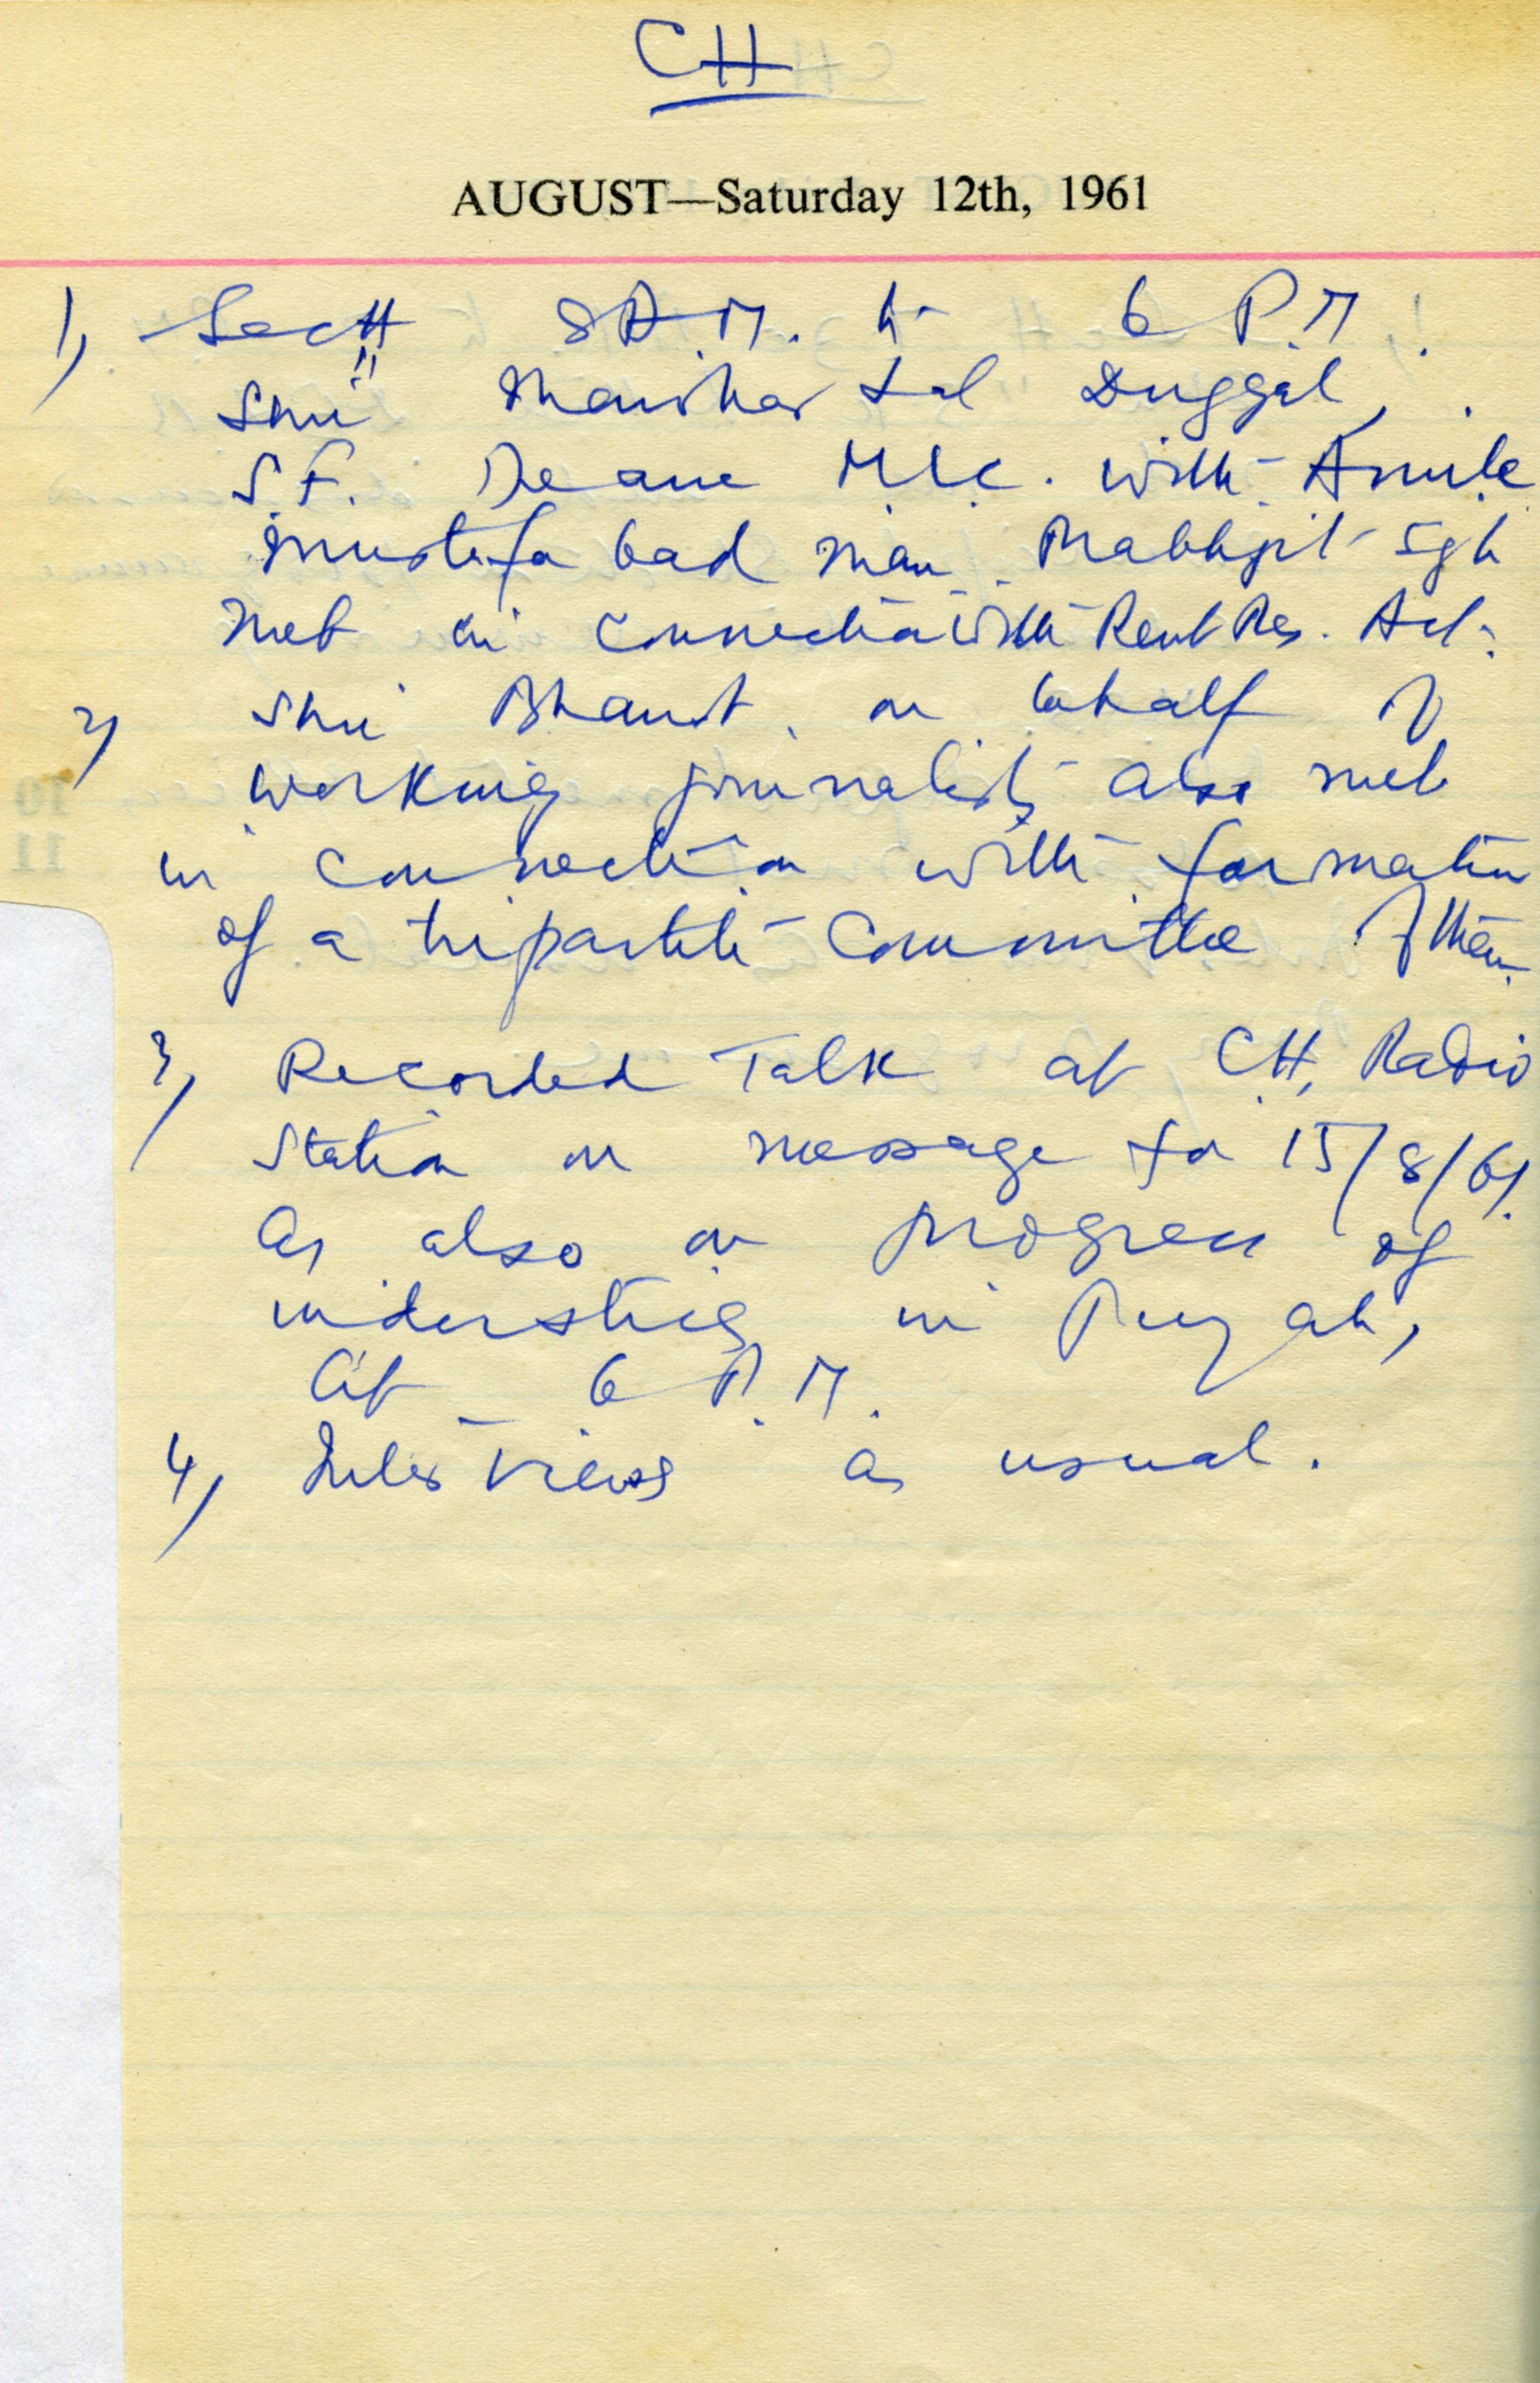 CH
AUGUST—Saturday 12th, 1961
1) Sectt 8 A.M. to 6 P.M.
Shri Manohar Lal Duggal,
S.F. Deane M.L.C. with
Mustafabad man. Prabhjit Sgh
met in connection with Rent Res. Act.
2) Shri on behalf of
working journalists also met
in connection with formation
of a tripartite Committee of them.
3) Recorded Talk at CH, Radio
Station on message for 15/8/61.
As also on progress of
industries in Punjab,
at 6 P.M.
4) Interviews as usual.
10
11